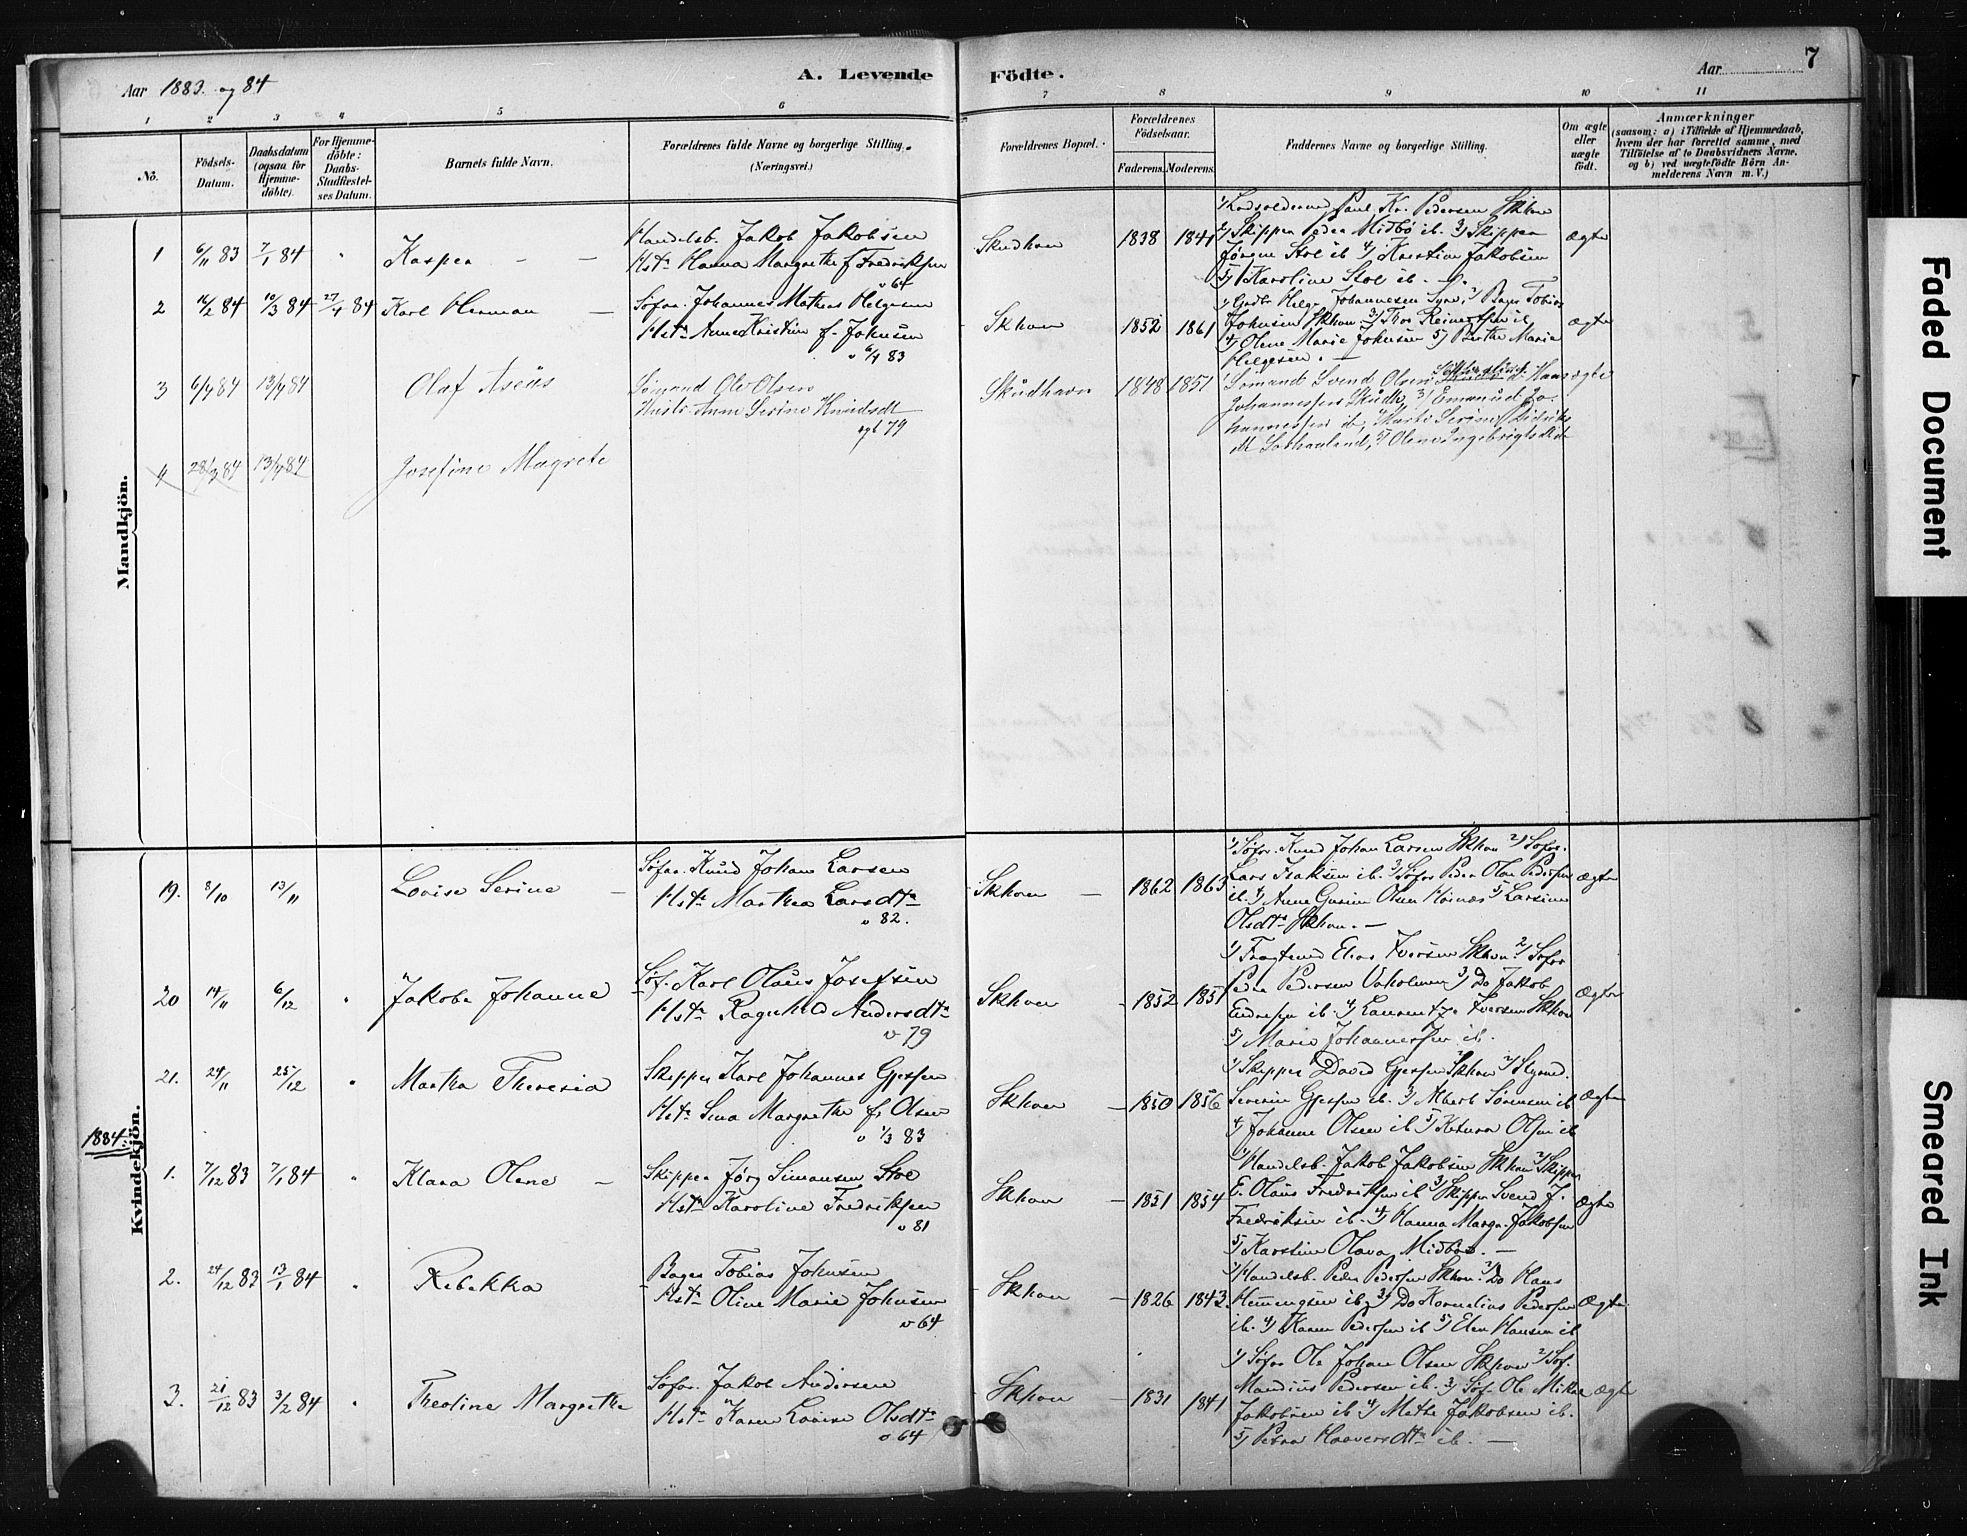 Aar 1883. og 84
A. Levende
Födte.
Aar
7
1 2 3 4 5 6 7 8 9 10 11
No.
Födsels-Datum.
Daabsdatum (ogsaa for Hjemme-döbte).
For Hjemme-döbte: Daabs-Stadfæstel-ses Datum.
Barnets fulde Navn.
Forældrenes fulde Navne og borgerlige Stilling.
(Næringsvei.)
Forældrenes Bopæl.
Forældrenes Födselsaar.
Faderens.
Moderens.
Faddernes Navne og borgerlige Stilling.
Om ægte eller uægte födt.
Anmærkninger
(saasom: a) i Tilfælde af Hjemmedaab, hvem der har forrettet samme, med Tilföielse af to Daabsvidners Navne, og b) ved uægtefödte Börn An-melderens Navn m. V.)
Mandkjön.
1 6/11 83 7/1 84 " Kasper
Handelsb. Jakob Jakobsen
Hstr Hanna Margrethe f Fredriksen
v 64
Skudhavn 1838 1841
Paul Kr. Pedersen Skhavn
2) Skipper Peder Midbö ib. 3) Skipper
Jörgen Stol ib 4) Kristian Jakobsen
5) Karoline Stol ib.
ægte
2 16/2 84 10/3 84 27/4 84 Karl Herman
Söfar. Johannes Mathias Helgesen
Hstr Anne Kristine f. Johnsen
v 6/4 83
Skhavn 1852 1861
1) Helge Johannesen Syre, 2) Bager Tobias
Johnsen Skhavn 3) Thor Reinertsen ib
4) Olene Marie Johnsen 5) Berthe Marie
Helgesen.
ægte
3 6/4 84 13/4 84 Olaf Aseüs
Sömand Ole Olsen
Hustr. Anne Serine Knudsdt
egt 79
Skudhavn 1848 1851
Sömand Svend Olsen
Johannessen Skudh, 3) Emanuel Jo-
hannessen ib,
5) Olene Ingebrigtsdt ib
ægte
4 28/3 84 13/4 84 Josefine Magrete
Kvindekjön.
19. 8/10 13/11 Lovise Serine
Söfar. Knud Johan Larsen
Hstr Martha Larsdtr
v 82.
Skhavn 1862 1863
1) Söfar. Knud Johan Larsen Skhavn 2) Söfar.
Lars Isaksen ib. 3) Söfar Peder Olai Pedersen
ib. 4) Anne Gurine Olsen 5) Larsine
Olsdtr Skhavn.
ægte
20 14/11 6/12 " Jakobe Johanne
Söf. Karl Olaus Josefsen
Hstr Ragnhild Andersdtr
v 79
Skhavn 1852 1851
1) Fragtemd Elias Iversen Skhavn 2) Söfar
Peder Pedersen Vaholmen 3) Do Jakob
Endresen ib. 4) Laurentze Iversen Skhavn
5) Marie Johannessen ib.
Ægte
21. 24/11 25/12 " Martha Theresia
Skipper Karl Johannes Gjessen
Hstr Sina Margrethe f. Olsen
v 1/3 83
Skhavn 1850 1856
1) Skipper David Gjessen Skhavn 2) Styrmd.
Severin Gjessen ib. 3) Albert Sörensen ib
4) Johanne Olsen ib 5) Ketura Olsen ib
Ægte
1884.
1. 7/12 83 7/1 84 " Klara Olene
Skipper Jörg Simonsen Stol
Hstr Karoline Fredriksen
v 81
Skhavn 1851 1854
1) Handelsb. Jakob Jakobsen Skhavn 2) Skipper
E. Olaus Fredriksen ib 3) Skipper Svend J.
Fredriksen ib. 4) Hanna Margr. Jakobsen
5) Karstine Olava Midböe.
Ægte
2. 24/12 83 13/1 84 " Rebekka
Bager Tobias Johnsen
Hstr Oline Marie Johnsen
v 64
Skhavn 1826 1843.
1) Handelsb. Peder Pedersen Skhavn. 2) Do Hans
Hemmingsen ib 3) Do Kornelius Pedersen
ib. 4) Karen Pedersen ib 5) Elen Hansen ib
Ægte
3. 21/12 83 3/2 84 " Theoline Margrethe
Söfar. Jakob Andersen
Hstr Karen Lovise Olsdtr
v 64
Skhavn 1831 1841
1) Söfar Ole Johan Olsen Skhavn 2) Söf.
Mandius Pedersen ib. 3) Söf. Ole Mikal
Jakobsen ib 4) Methe Jakobsen ib.
5) Petra Haaversdtr ib.
Ægte
Faded Document
Smeared Ink